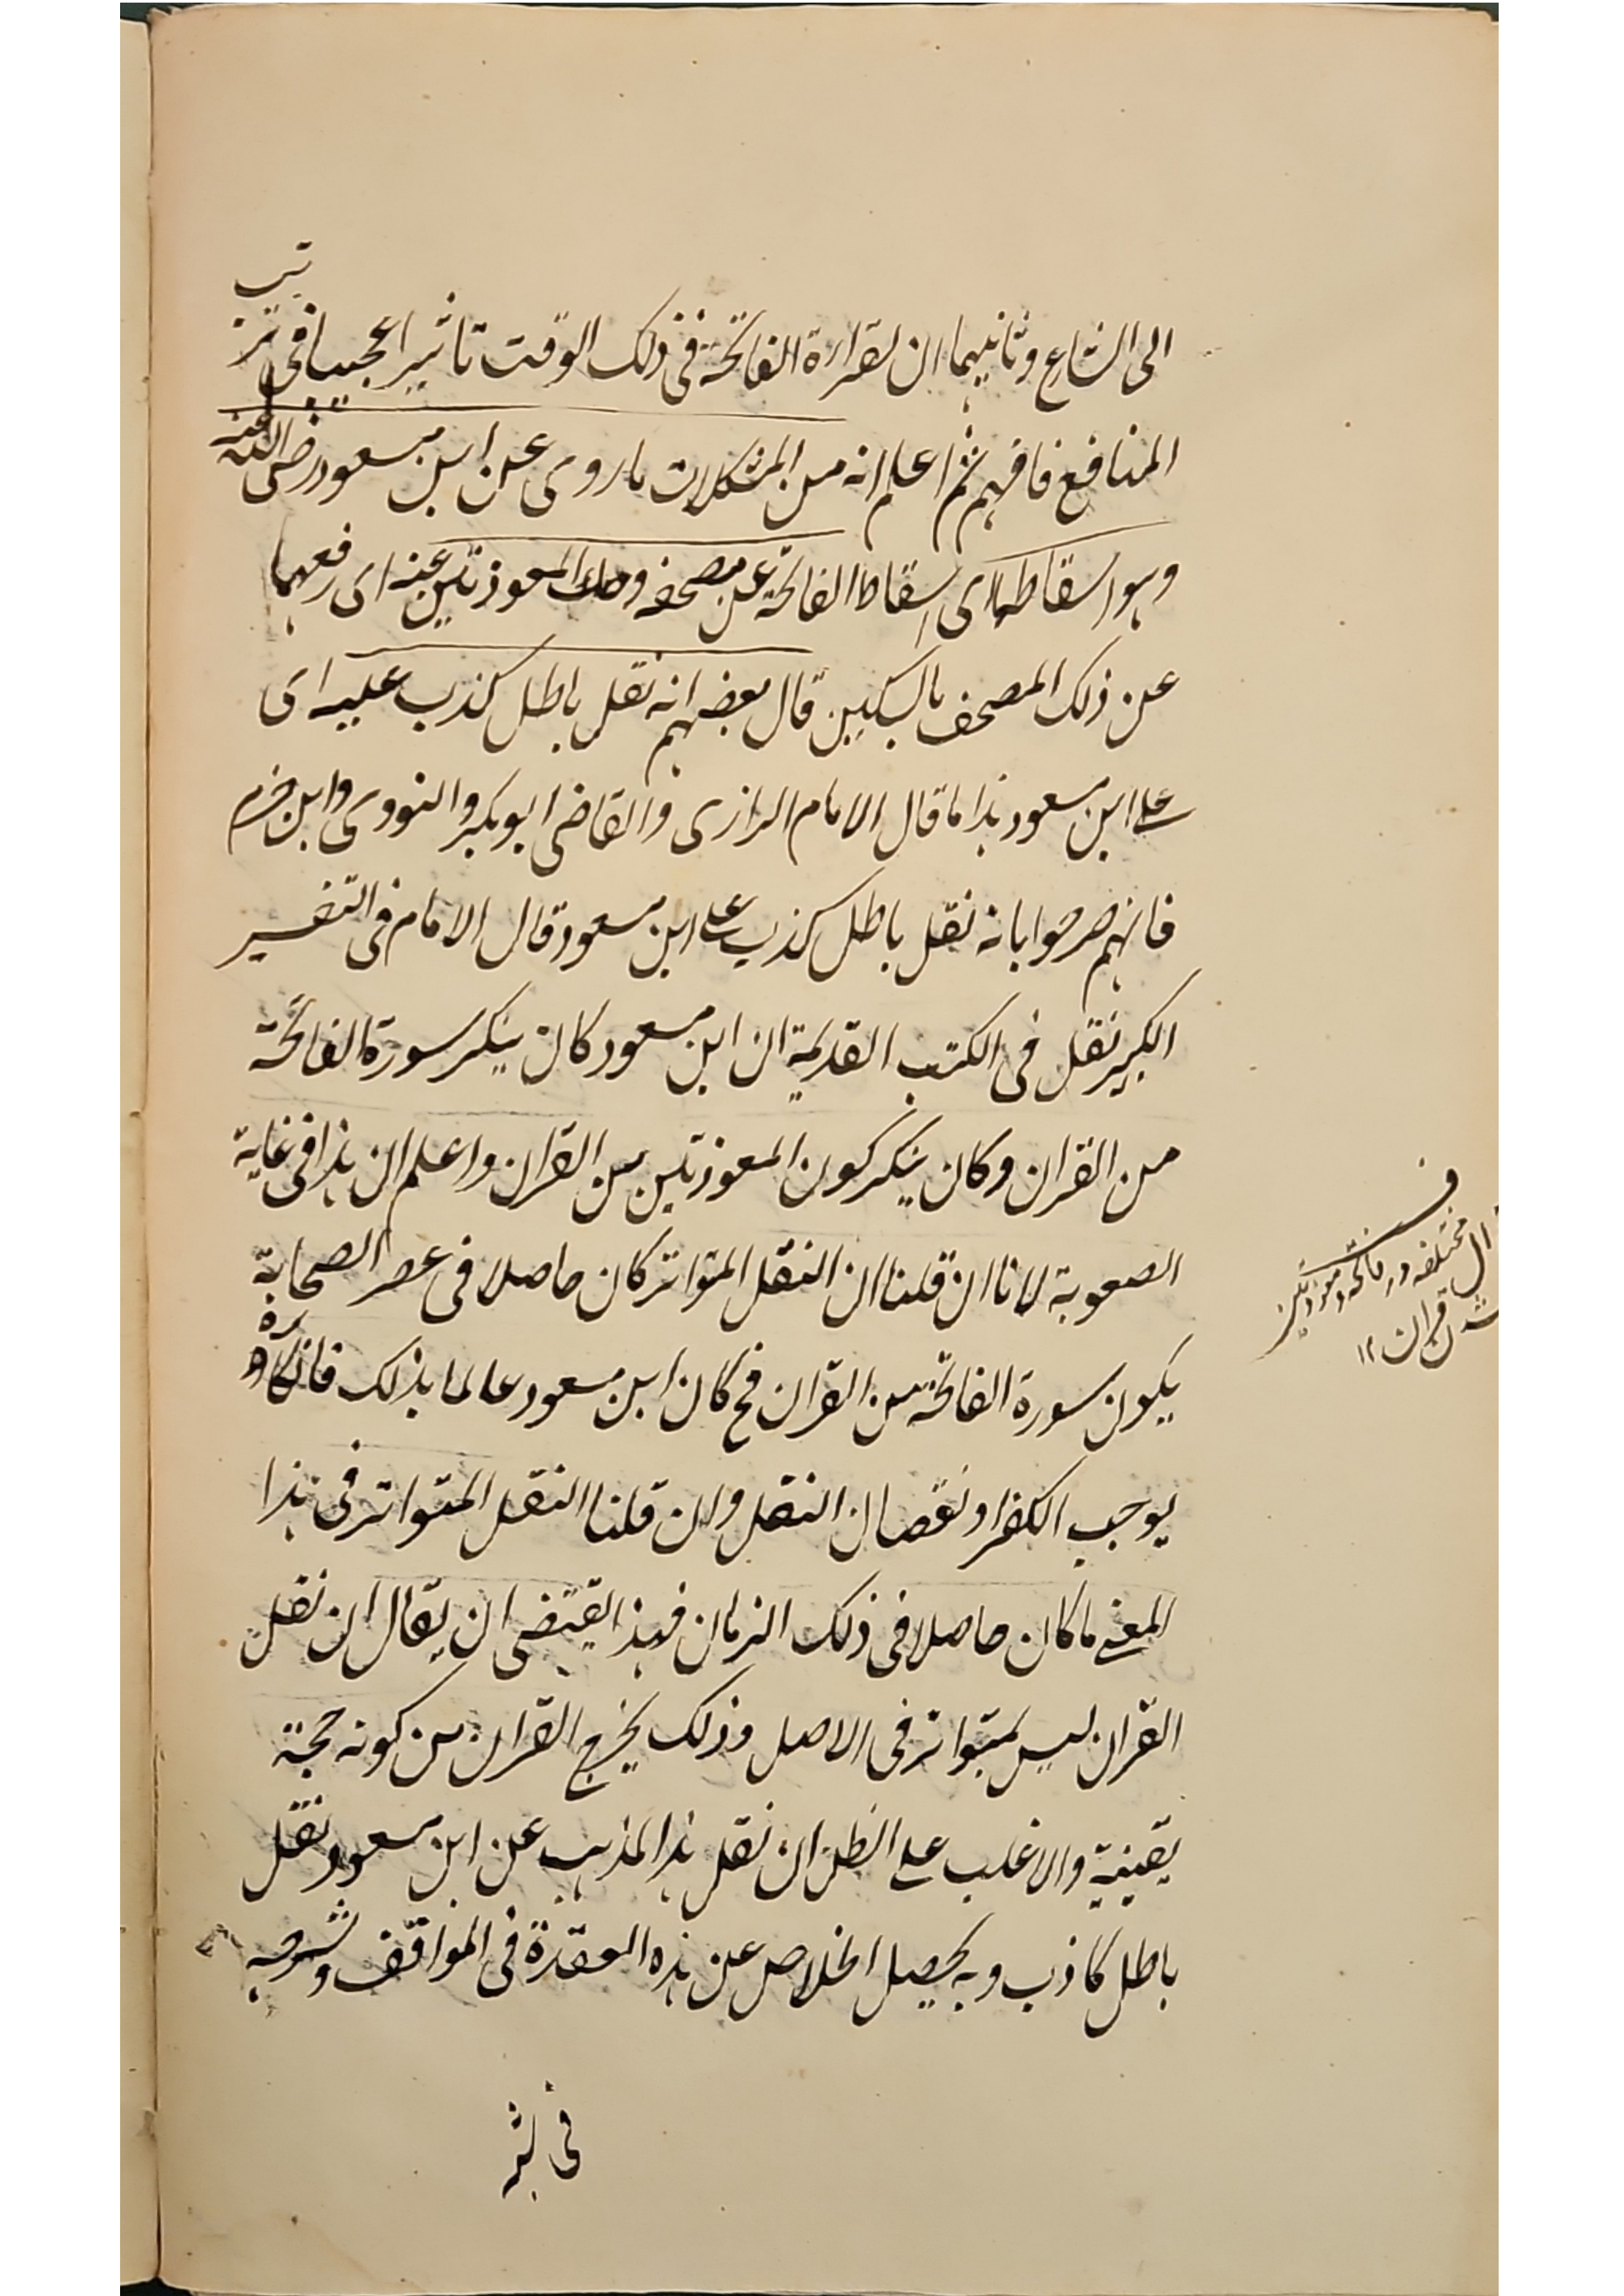 الى الشارع وثانيهما ان لقراءة الفاتحة فى ذلك الوقت تاثيرا عجيبا فى ترتيب
المنافع فافهم ثم اعلم انه من المشكلات ما روى عن ابن مسعود رضى الله عنه
وهو اسقاطها اى اسقاط الفاتحة عن مصحفه وحك المعوذتين عنه اى رفعهما
عن ذلك المصحف بالسكين قال بعضهم انه نقل باطل كذب عليه اى
على ابن مسعود هذا ما قال الامام الرازى والقاضى ابو بكر والنووى وابن حزم
فانهم صرحوا بانه نقل باطل كذب على ابن مسعود قال الامام فى التفسير
الكبير نقل فى الكتب القديمة ان ابن مسعود كان ينكر سورة الفاتحة
من القران وكان ينكر كون المعوذتين من القران واعلم ان هذا فى غاية
الصعوبة لانا ان قلنا ان النقل المتواتر كان حاصلا فى عصر الصحابة
يكون سورة الفاتحة من القران فح كان ابن مسعود عالما بذلك فانكاره
يوجب الكفر او نقصان النقل وان قلنا النقل المتواتر فى هذا
المعنى ما كان حاصلا فى ذلك الزمان فهذا يقتضى ان يقال ان نقل
القران ليس بمتواتر فى الاصل وذلك يخرج القران من كونه حجة
يقينية والاغلب على الظن ان نقل هذا المذهب عن ابن مسعود نقل
باطل كاذب وبه يحصل الخلاص عن هذه العقدة فى المواقف وشرحه
ف
مختلفه در فاتحه و معوذتين
قران ١٢